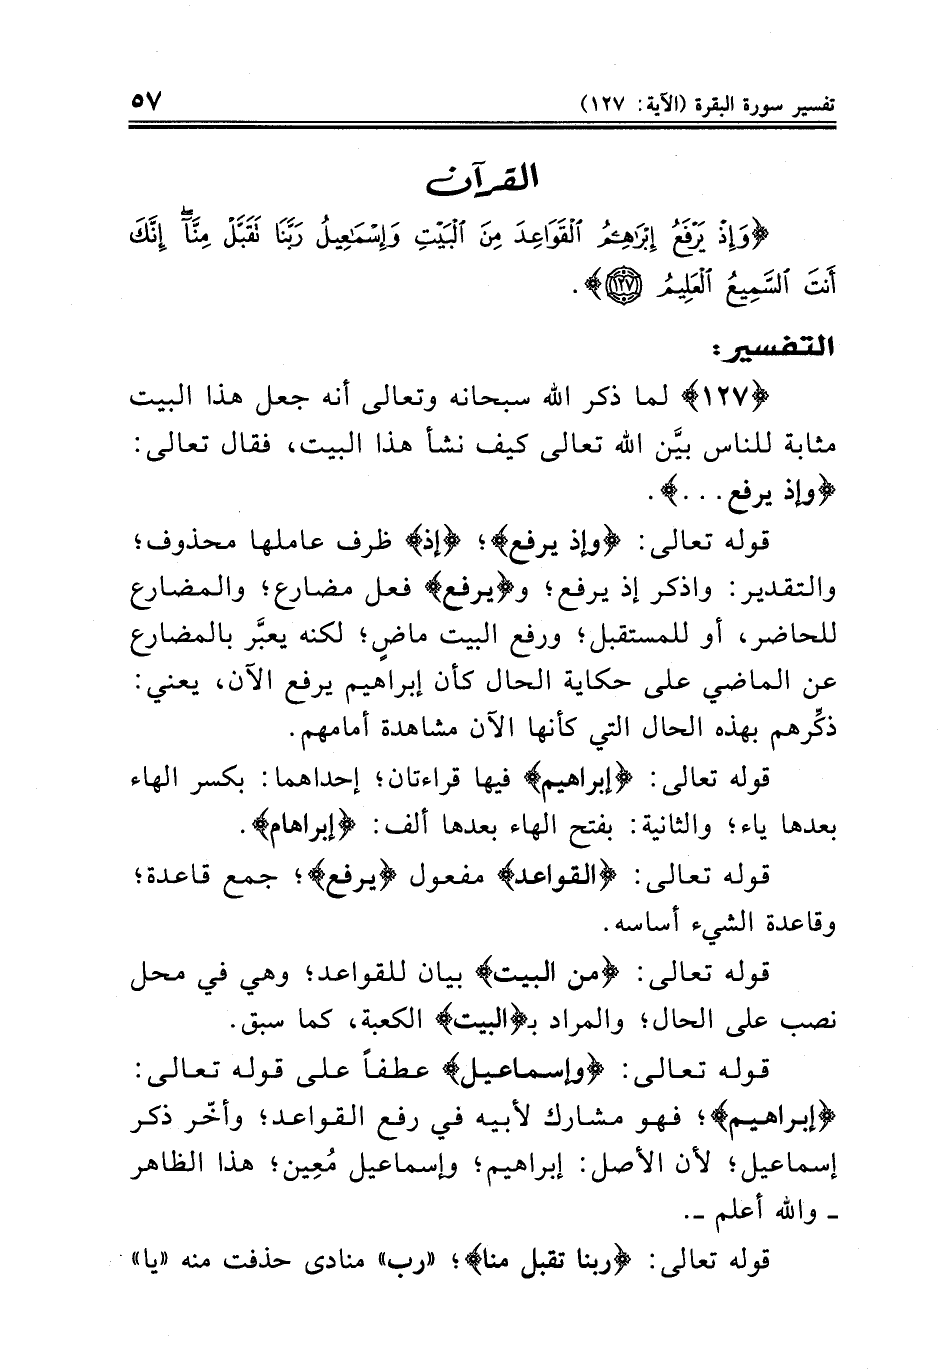 تفسير سورة البقرة (الآية: ١٢٧) ٥٧
القرآن
﴿وَإِذْ يَرْفَعُ إِبْرَٰهِـۧمُ ٱلْقَوَاعِدَ مِنَ ٱلْبَيْتِ وَإِسْمَـٰعِيلُ رَبَّنَا تَقَبَّلْ مِنَّآ ۖ إِنَّكَ
أَنتَ ٱلسَّمِيعُ ٱلْعَلِيمُ ١٢٧﴾.
التفسير:
﴿١٢٧﴾ لما ذكر الله سبحانه وتعالى أنه جعل هذا البيت
مثابة للناس بيَّن الله تعالى كيف نشأ هذا البيت، فقال تعالى:
﴿وإذ يرفع...﴾.
قوله تعالى: ﴿وإذ يرفع﴾؛ ﴿إذ﴾ ظرف عاملها محذوف؛
والتقدير: واذكر إذ يرفع؛ و﴿يرفع﴾ فعل مضارع؛ والمضارع
للحاضر، أو للمستقبل؛ ورفع البيت ماضٍ؛ لكنه يعبَّر بالمضارع
عن الماضي على حكاية الحال كأن إبراهيم يرفع الآن، يعني:
ذكِّرهم بهذه الحال التي كأنها الآن مشاهدة أمامهم.
قوله تعالى: ﴿إبراهيم﴾ فيها قراءتان؛ إحداهما: بكسر الهاء
بعدها ياء؛ والثانية: بفتح الهاء بعدها ألف: ﴿إبراهام﴾.
قوله تعالى: ﴿القواعد﴾ مفعول ﴿يرفع﴾؛ جمع قاعدة؛
وقاعدة الشيء أساسه.
قوله تعالى: ﴿من البيت﴾ بيان للقواعد؛ وهي في محل
نصب على الحال؛ والمراد بـ﴿البيت﴾ الكعبة، كما سبق.
قوله تعالى: ﴿وإسماعيل﴾ عطفاً على قوله تعالى:
﴿إبراهيم﴾؛ فهو مشارك لأبيه في رفع القواعد؛ وأخّر ذكر
إسماعيل؛ لأن الأصل: إبراهيم؛ وإسماعيل مُعِين؛ هذا الظاهر
ـ والله أعلم ـ.
قوله تعالى: ﴿ربنا تقبل منا﴾؛ «رب» منادى حذفت منه «يا»